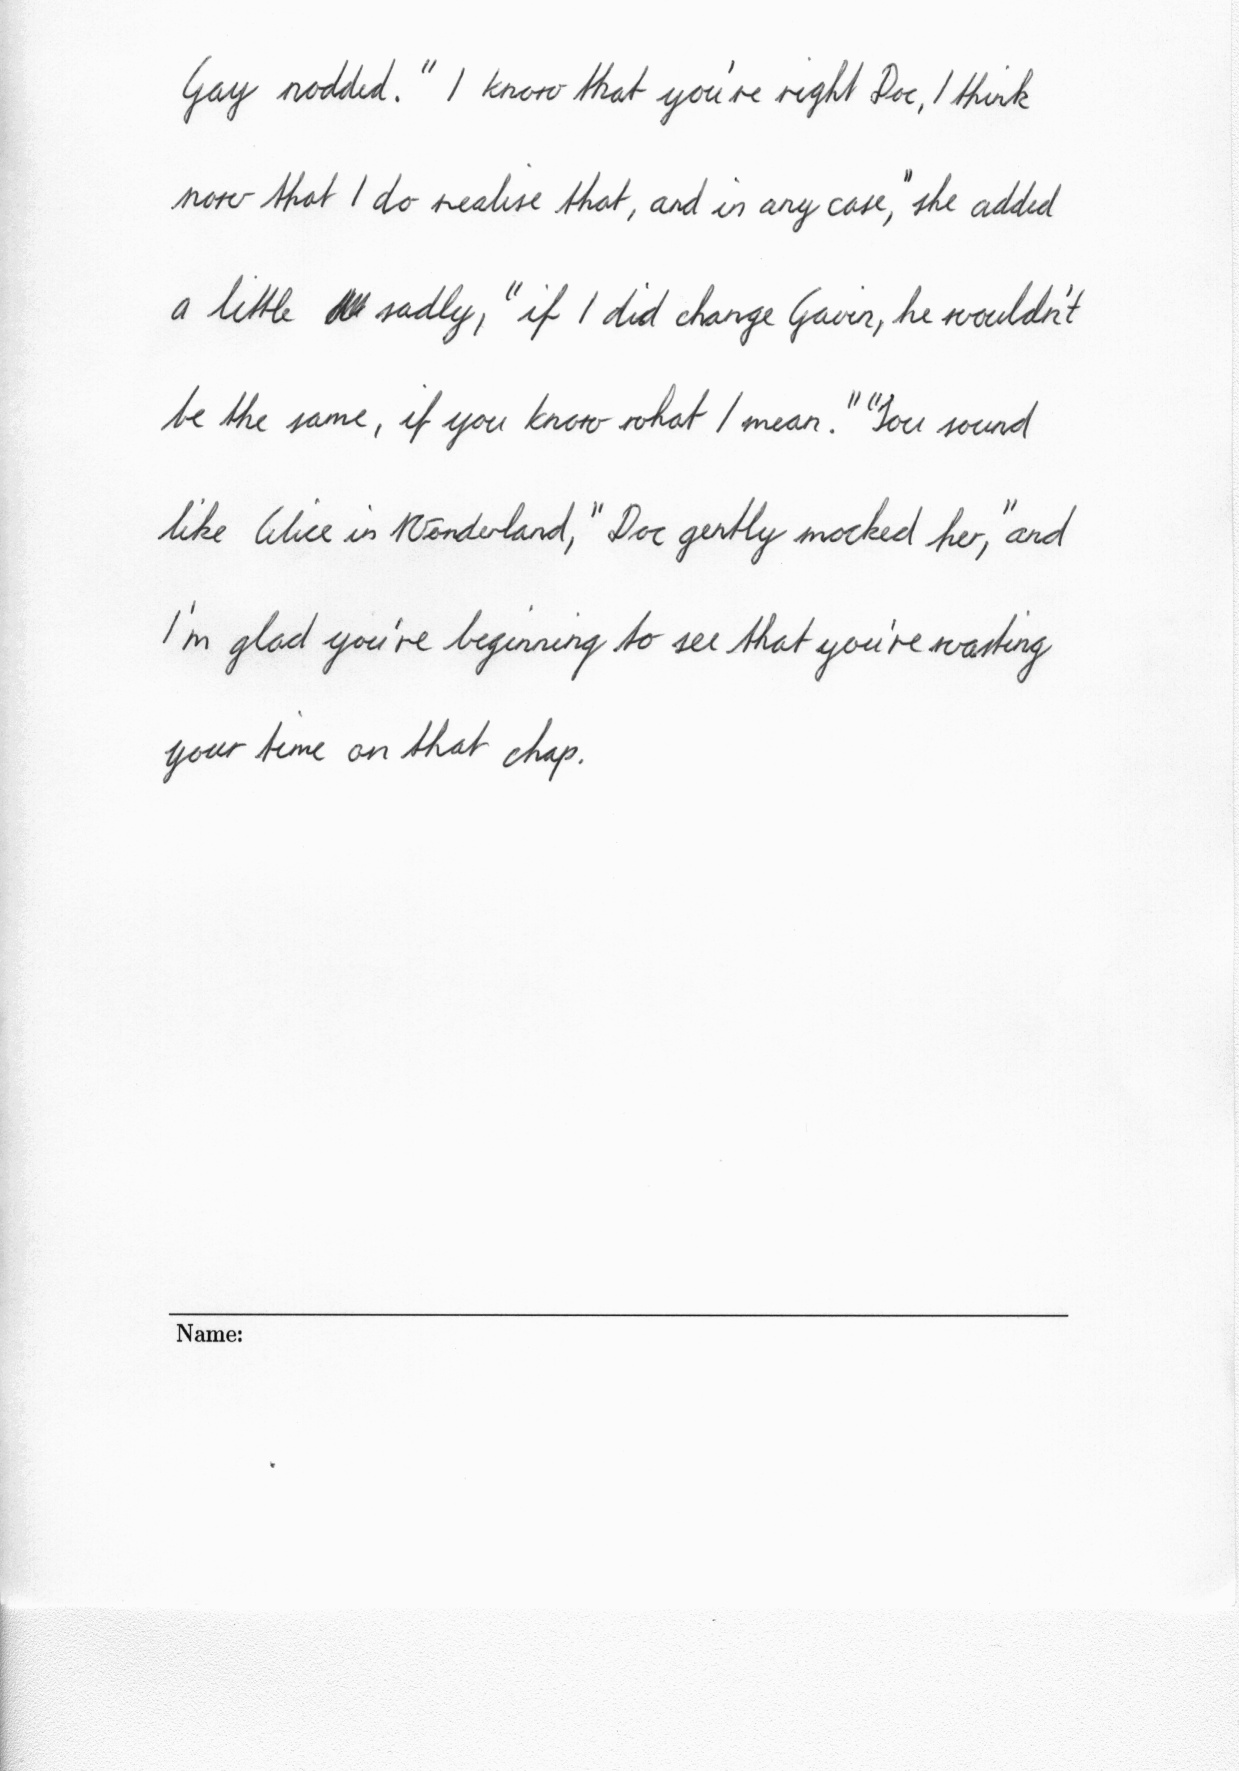 Gay nodded. " I know that you're right Doc, I think
now that I do realise that, and in any case," she added
a little sadly, "if I did change Gavin, he wouldn't
be the same, if you know what I mean." "You sound
like Alice in Wonderland," Doc gently mocked her, "and
I'm glad you're beginning to see that you're wasting
your time on that chap.
Name: